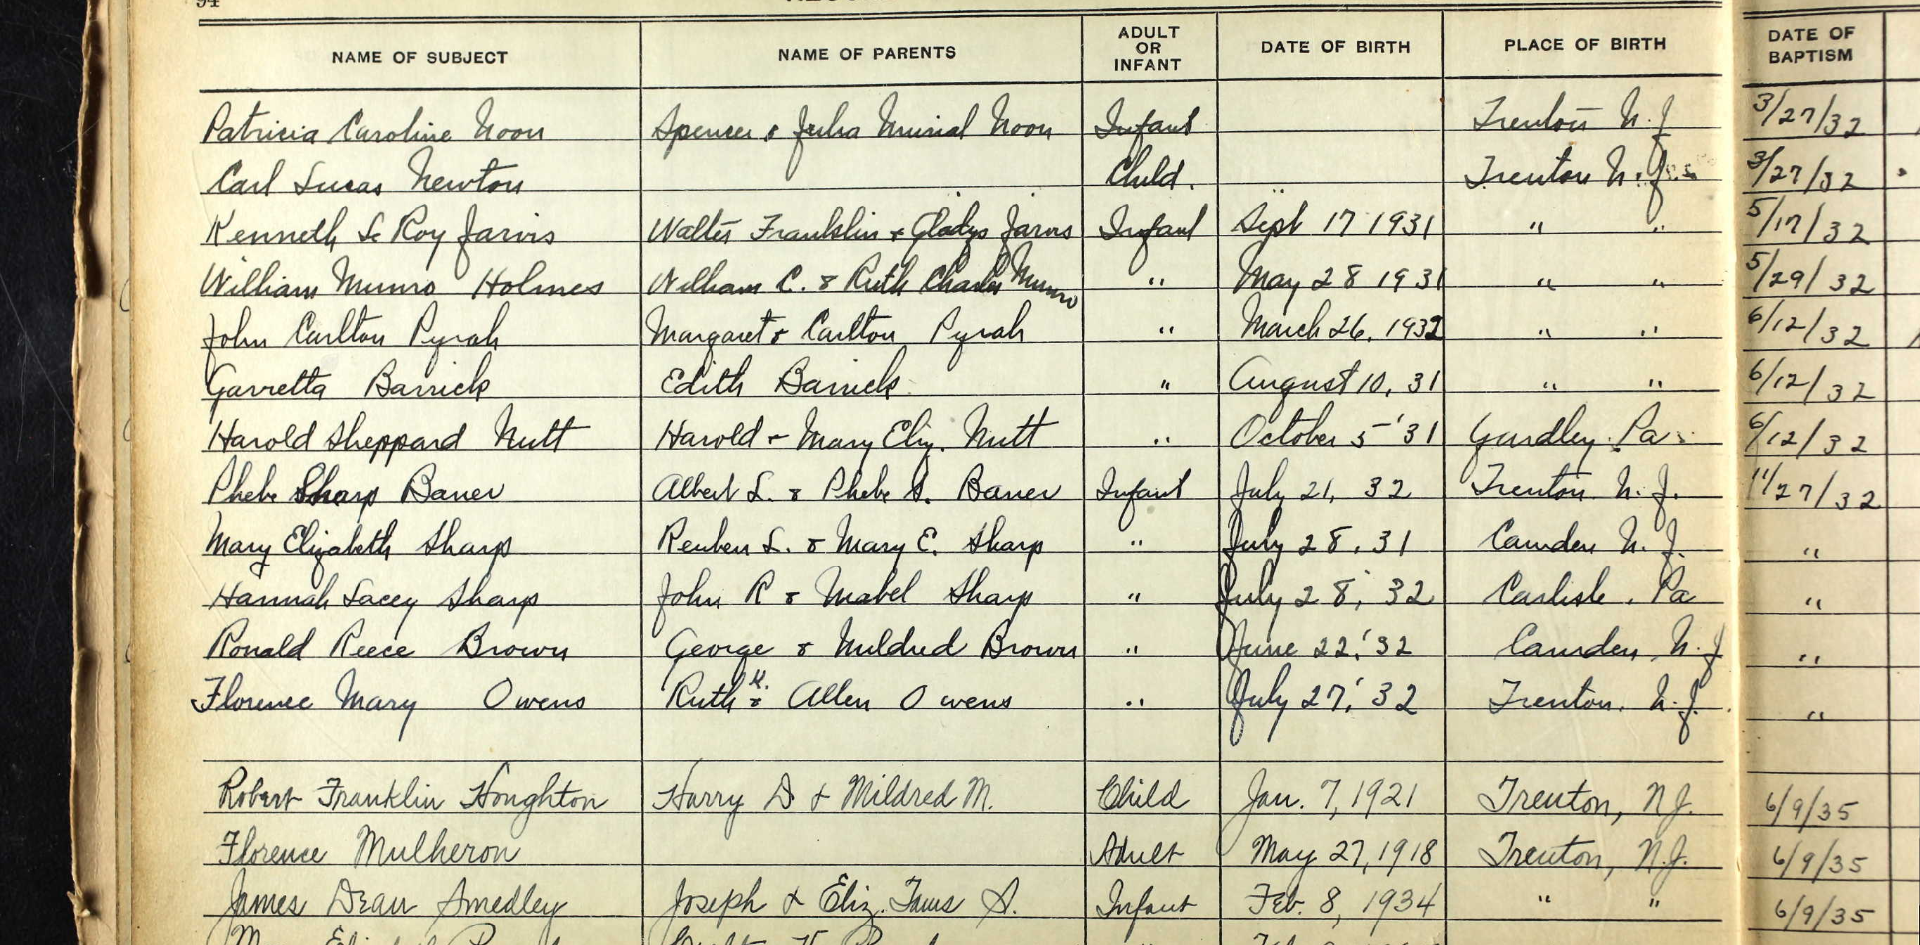 94
NAME OF SUBJECT NAME OF PARENTS ADULT OR INFANT DATE OF BIRTH PLACE OF BIRTH DATE OF BAPTISM
Patricia Caroline Noon Spencer & Julia Murial Noon Infant Trenton N. J 3/27/32
Carl Lucas Newton Child. Trenton N. J. 3/27/32
Kenneth Le Roy Jarvis Walter Franklin & Gladys Jarvis Infant Sept 17 1931 " " 5/17/32
William Munro Holmes William C. & Ruth Charles Munro " May 28 1931 " " 5/29/32
John Carlton Pyrah Margaret & Carlton Pyrah " March 26, 1932 " " 6/12/32
Garretta Barrick Edith Barrick " August 10, 31 " " 6/12/32
Harold Sheppard Nutt Harold & Mary Eliz. Nutt " October 5 '31 Yardley Pa. 6/12/32
Phebe Sharp Baner Albert L. & Phebe S. Baner Infant July 21, 32 Trenton N. J. 11/27/32
Mary Elizabeth Sharp Reuben L. & Mary E. Sharp " July 28, 31 Camden N. J. "
Hannah Lacey Sharp John R & Mabel Sharp " July 28, 32 Carlisle, Pa "
Ronald Reece Brown George & Mildred Brown " June 22, '32 Camden, N. J "
Florence Mary Owens Ruth & Allen Owens " July 27, '32 Trenton. N. J. "
Robert Franklin Houghton Harry D & Mildred M. Child Jan. 7, 1921 Trenton, N.J. 6/9/35
Florence Mulheron Adult May 27, 1918 Trenton, N.J. 6/9/35
James Dean Smedley Joseph & Eliz. Taws S. Infant Feb. 8, 1934 " " 6/9/35